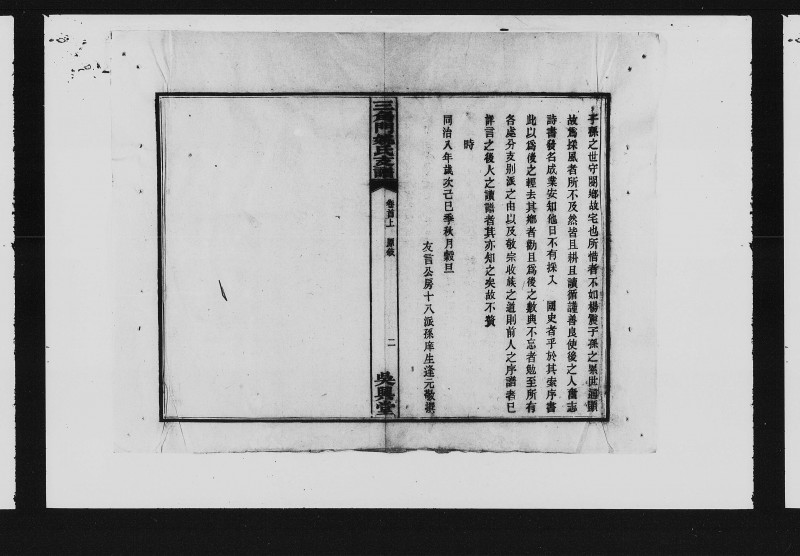 子孫之世守關鄉故宅也所惜者不如楊震子孫之累世通顯
故為採風者所不及然皆且耕且讀循謹善良使後之人奮志
詩書發名成業安知他日不有採入 國史者乎於其索序書
此以為後之輕去其鄉者勸且為後之數典不忘者勉至所有
各處分支別派之由以及敬宗收族之道則前人之序譜者已
詳言之後人之讀譜者其亦知之矣故不贅
時
同治八年歲次己巳季秋月穀旦
友言公房十八派孫庠生逢元敬撰
三角閘 氏支譜
卷首上 原敘
二
吳興堂